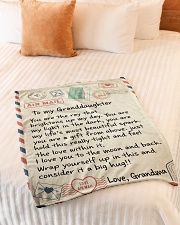 AIR MAIL
To my Granddaughter
You are the ray that
brightens up my day. You are
my light in the dark, you are
my life's most beautiful spark.
you are a gift from above, just
hold this really tight and feel
the love within it.
I love you to the moon and back.
Wrap yourself up in this and
consider it a big hug!
Love, Grandma